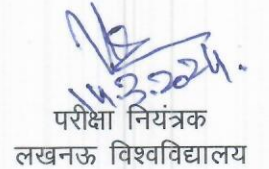 14.3.2024.
परीक्षा नियंत्रक
लखनऊ विश्वविद्यालय